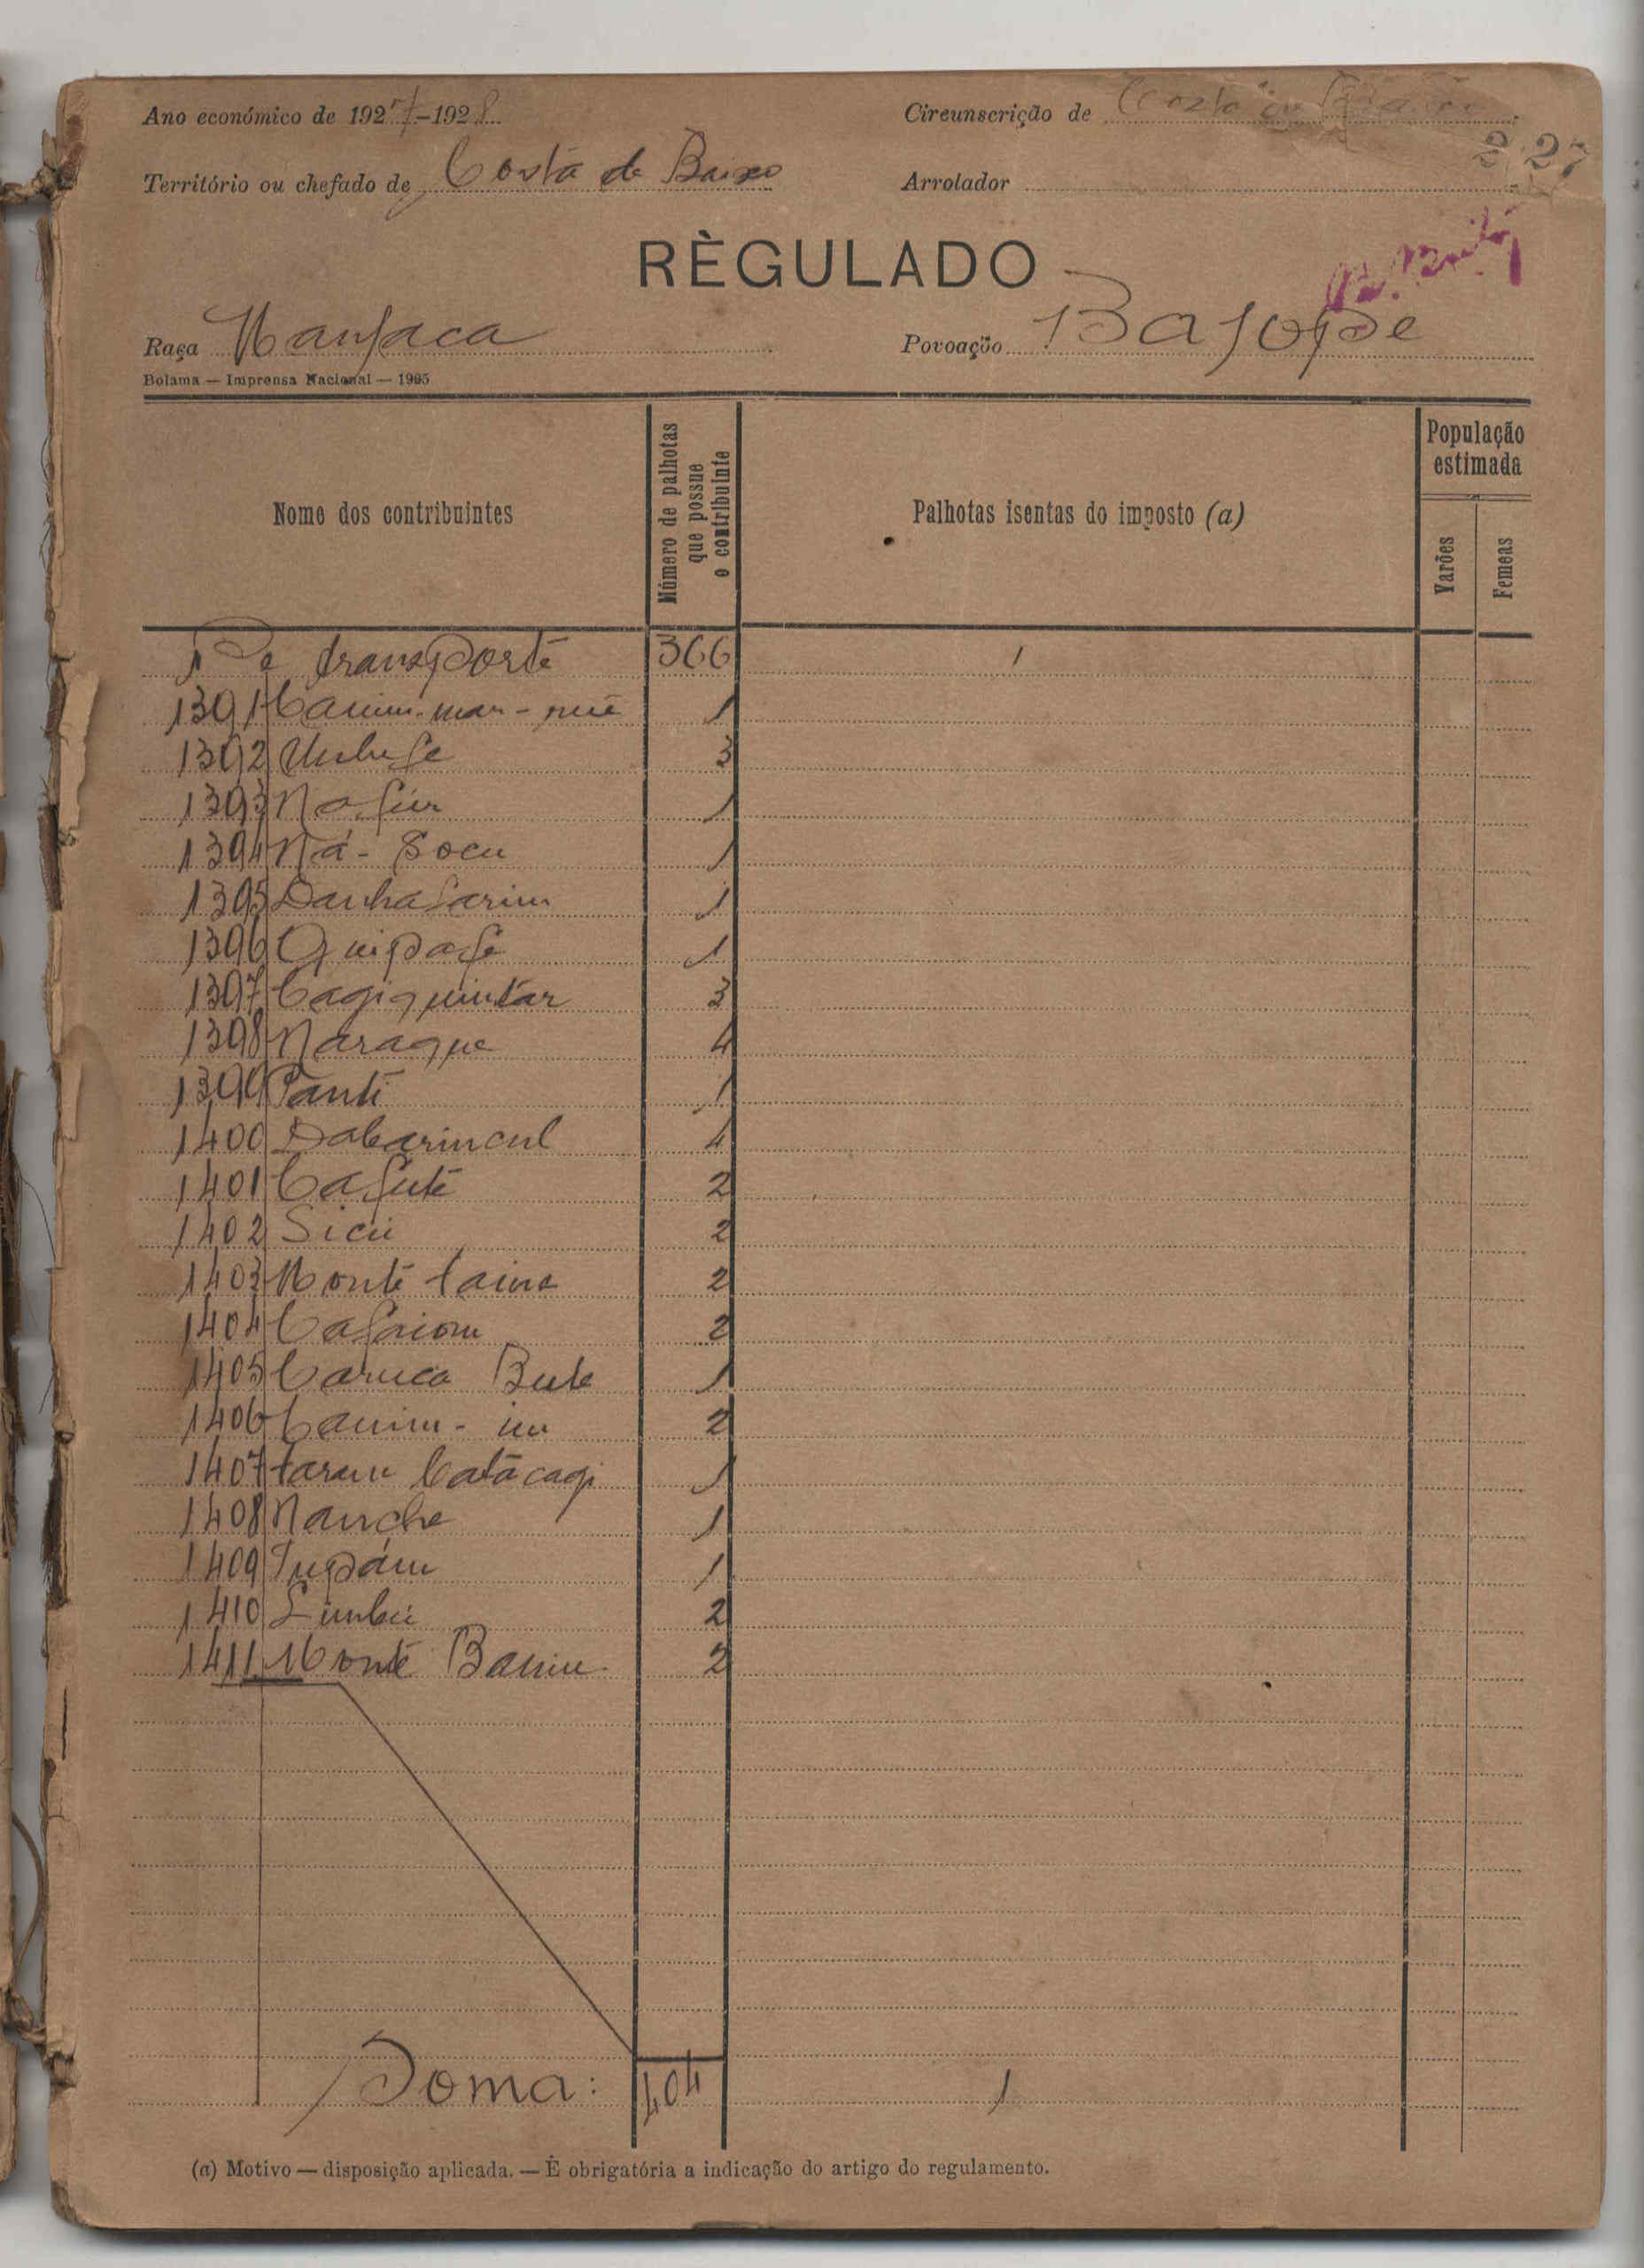 Ano económico de 1927-1928
Circunscrição de Costa de Baixo
Território ou chefado de Costa de Baixo
Arrolador
227
RÈGULADO
Raça Manjaca
Povoação Bajope
Bolama — Imprensa Nacional — 1925
Nome dos contribuintes
Número de palhotas que possue o contribuinte
Palhotas isentas do imposto (a)
População estimada
Varões
Femeas
De transporte 366 1
1391 Canim-man-nué 1
1392 3
1393 Nafún 1
1394 Ná-Socu 1
1395 Danhasarim 1
1396 Quipase 1
1397 Cagiquintar 3
1398 Naraque 4
1399 Panti 1
1400 Dabarincul 4
1401 Cafuté 2
1402 Sicú 2
1403 Monté 2
1404 2
1405 Caruca Bute 1
1406 Canim-in 2
1407 Catácagi 1
1408 Nanche 1
1409 Tupám 1
1410 Limbú 2
1411 Monté Banin 2
Soma: 404 1
(a) Motivo — disposição aplicada. — É obrigatória a indicação do artigo do regulamento.